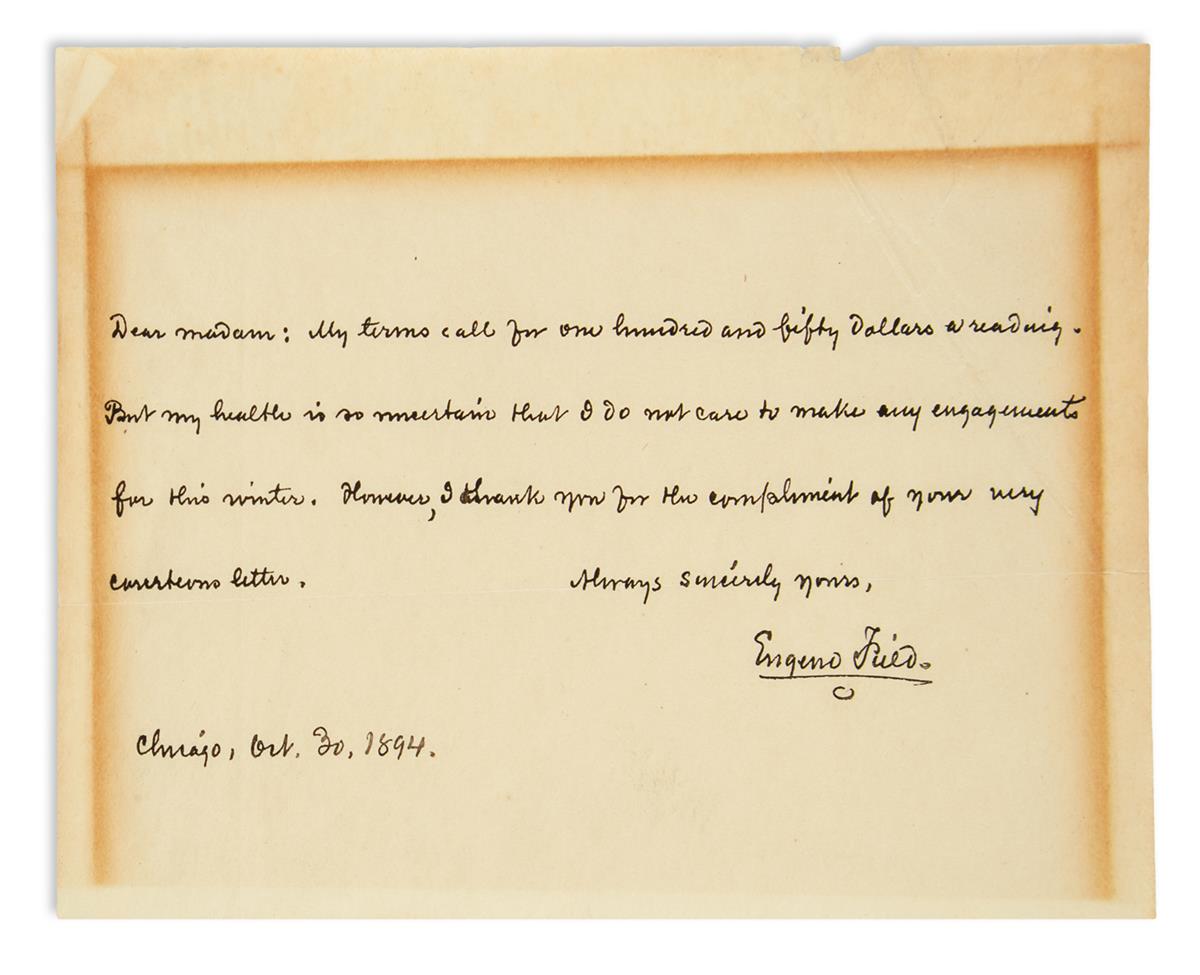 Dear madam: My terms call for one hundred and fifty dollars a reading.
But my health is so uncertain that I do not care to make any engagements
for this winter. However, I thank you for the compliment of your very
courteous letter. Always sincerely yours,
Eugene Field.
Chicago, Oct. 30, 1894.